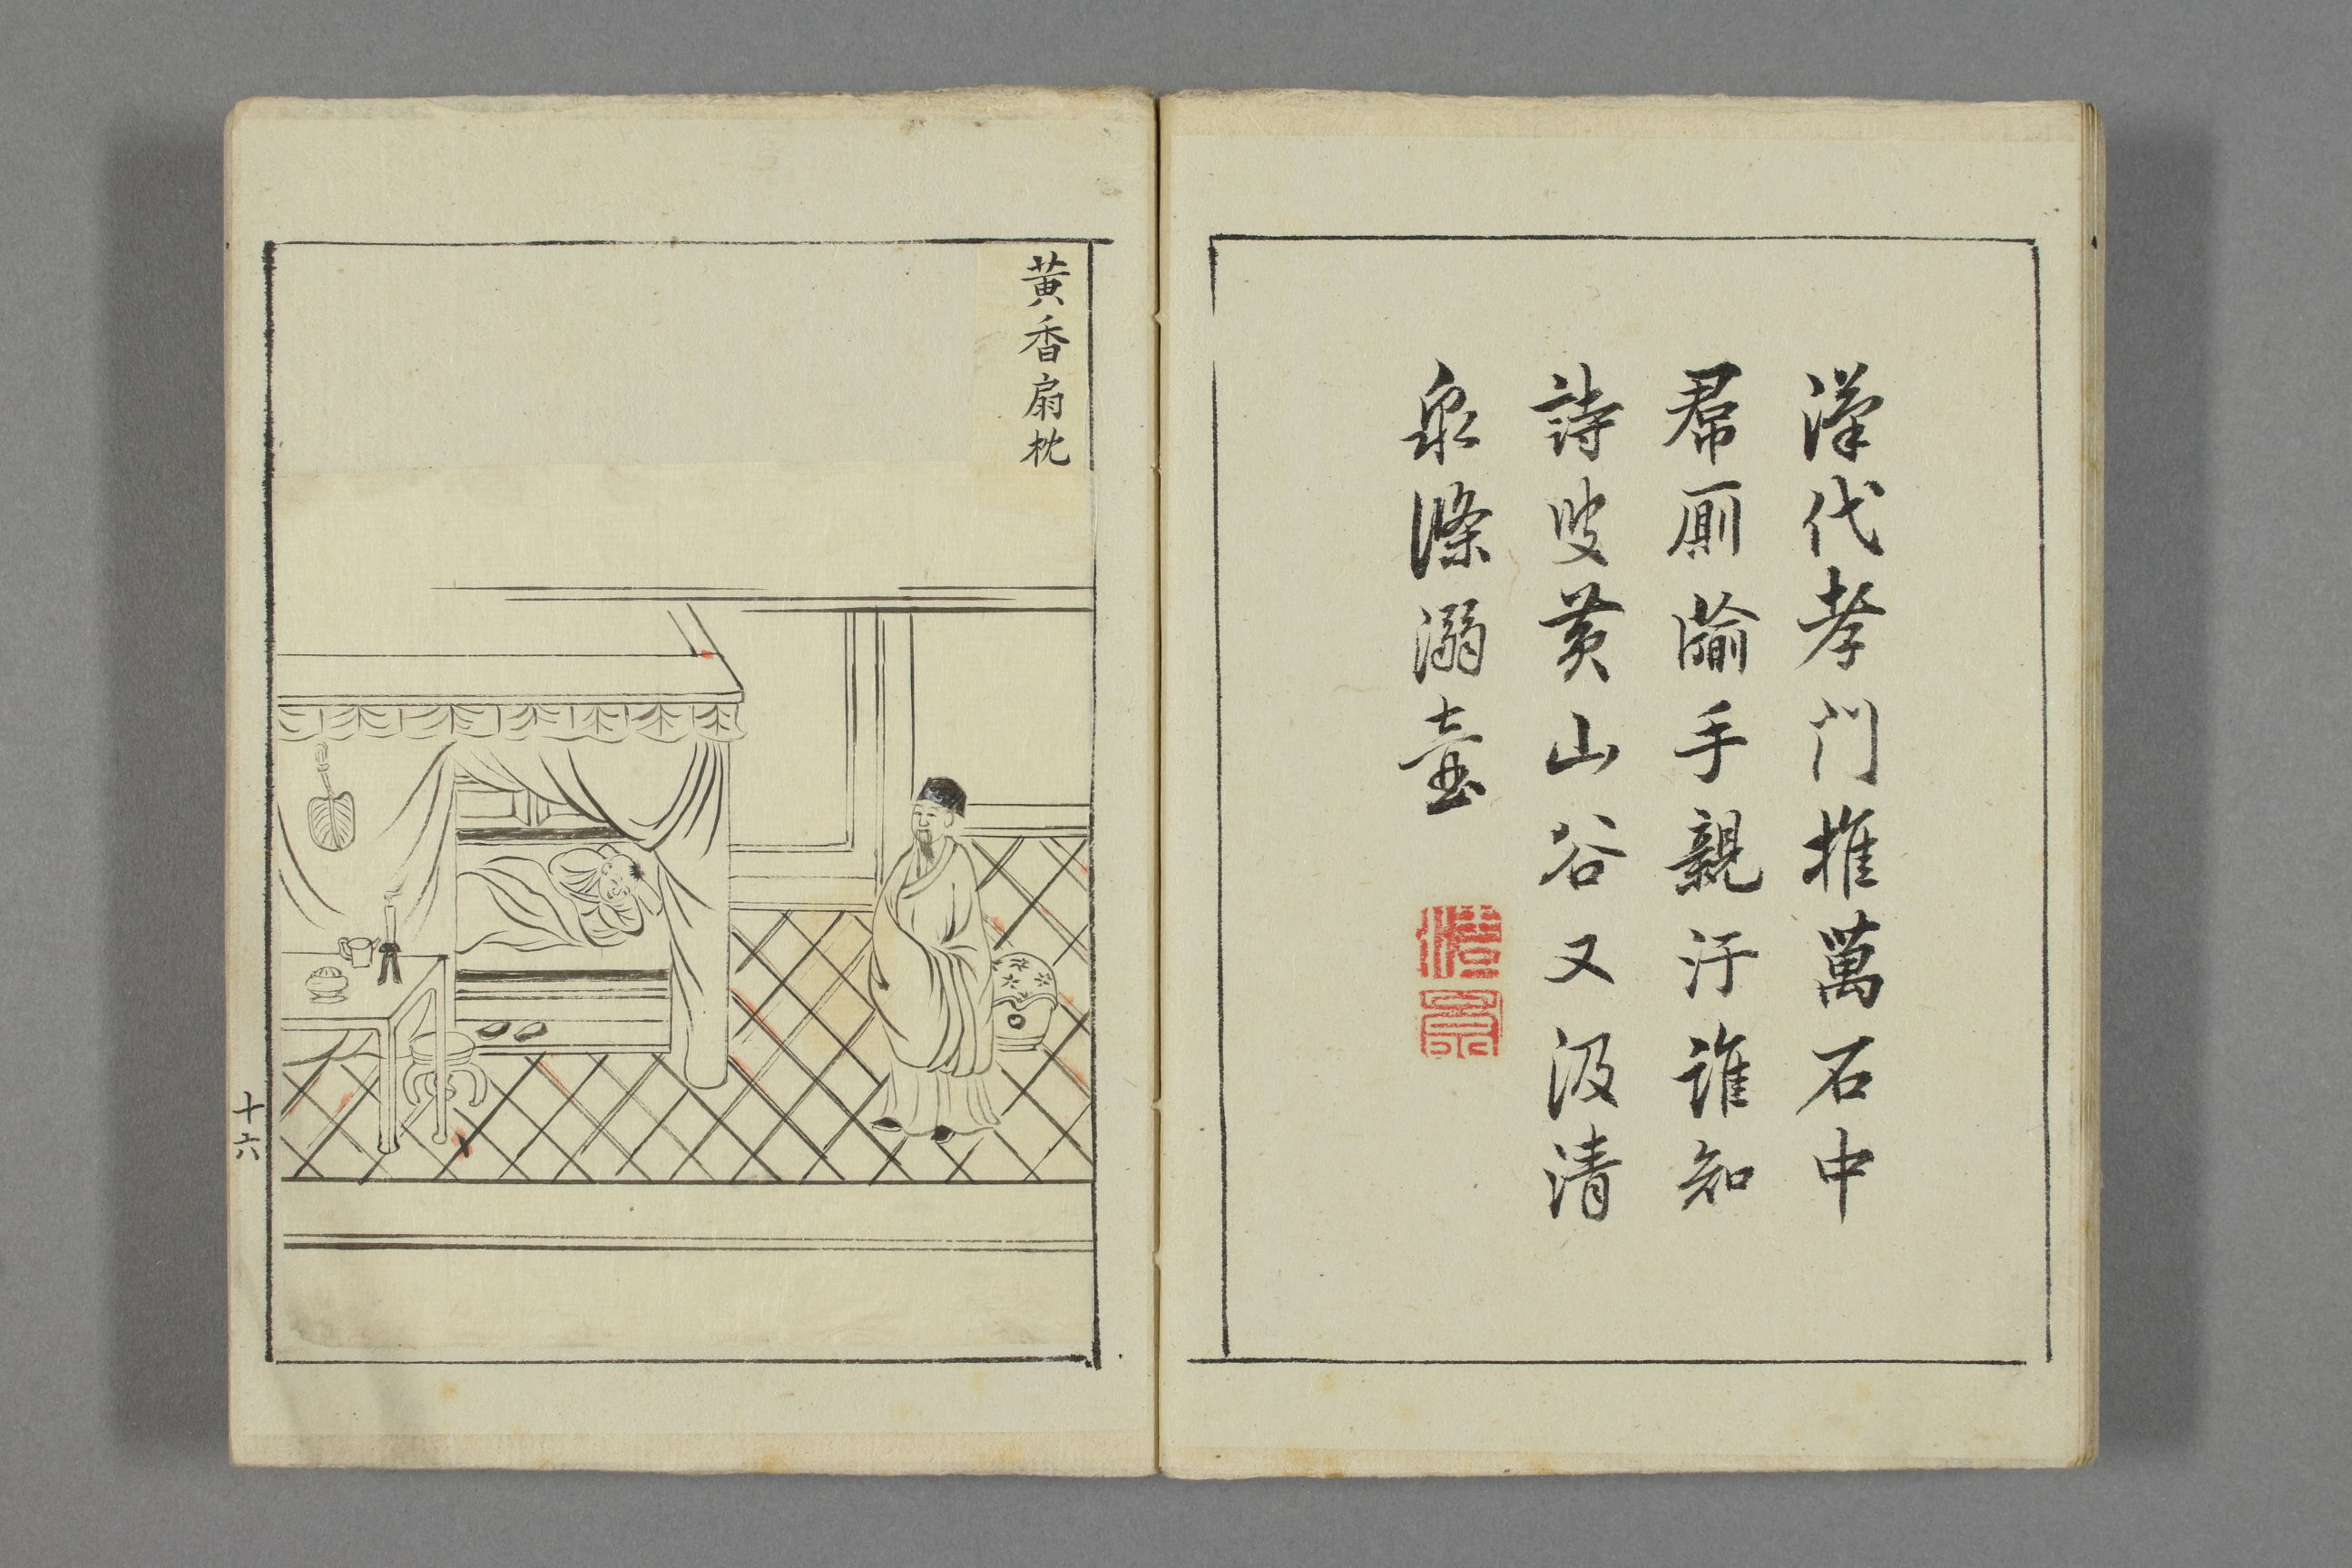 漢代孝門推萬石中
帬厠牏手親汙誰知
詩叟黄山谷又汲清
泉滌溺壺
黄香扇枕
十六